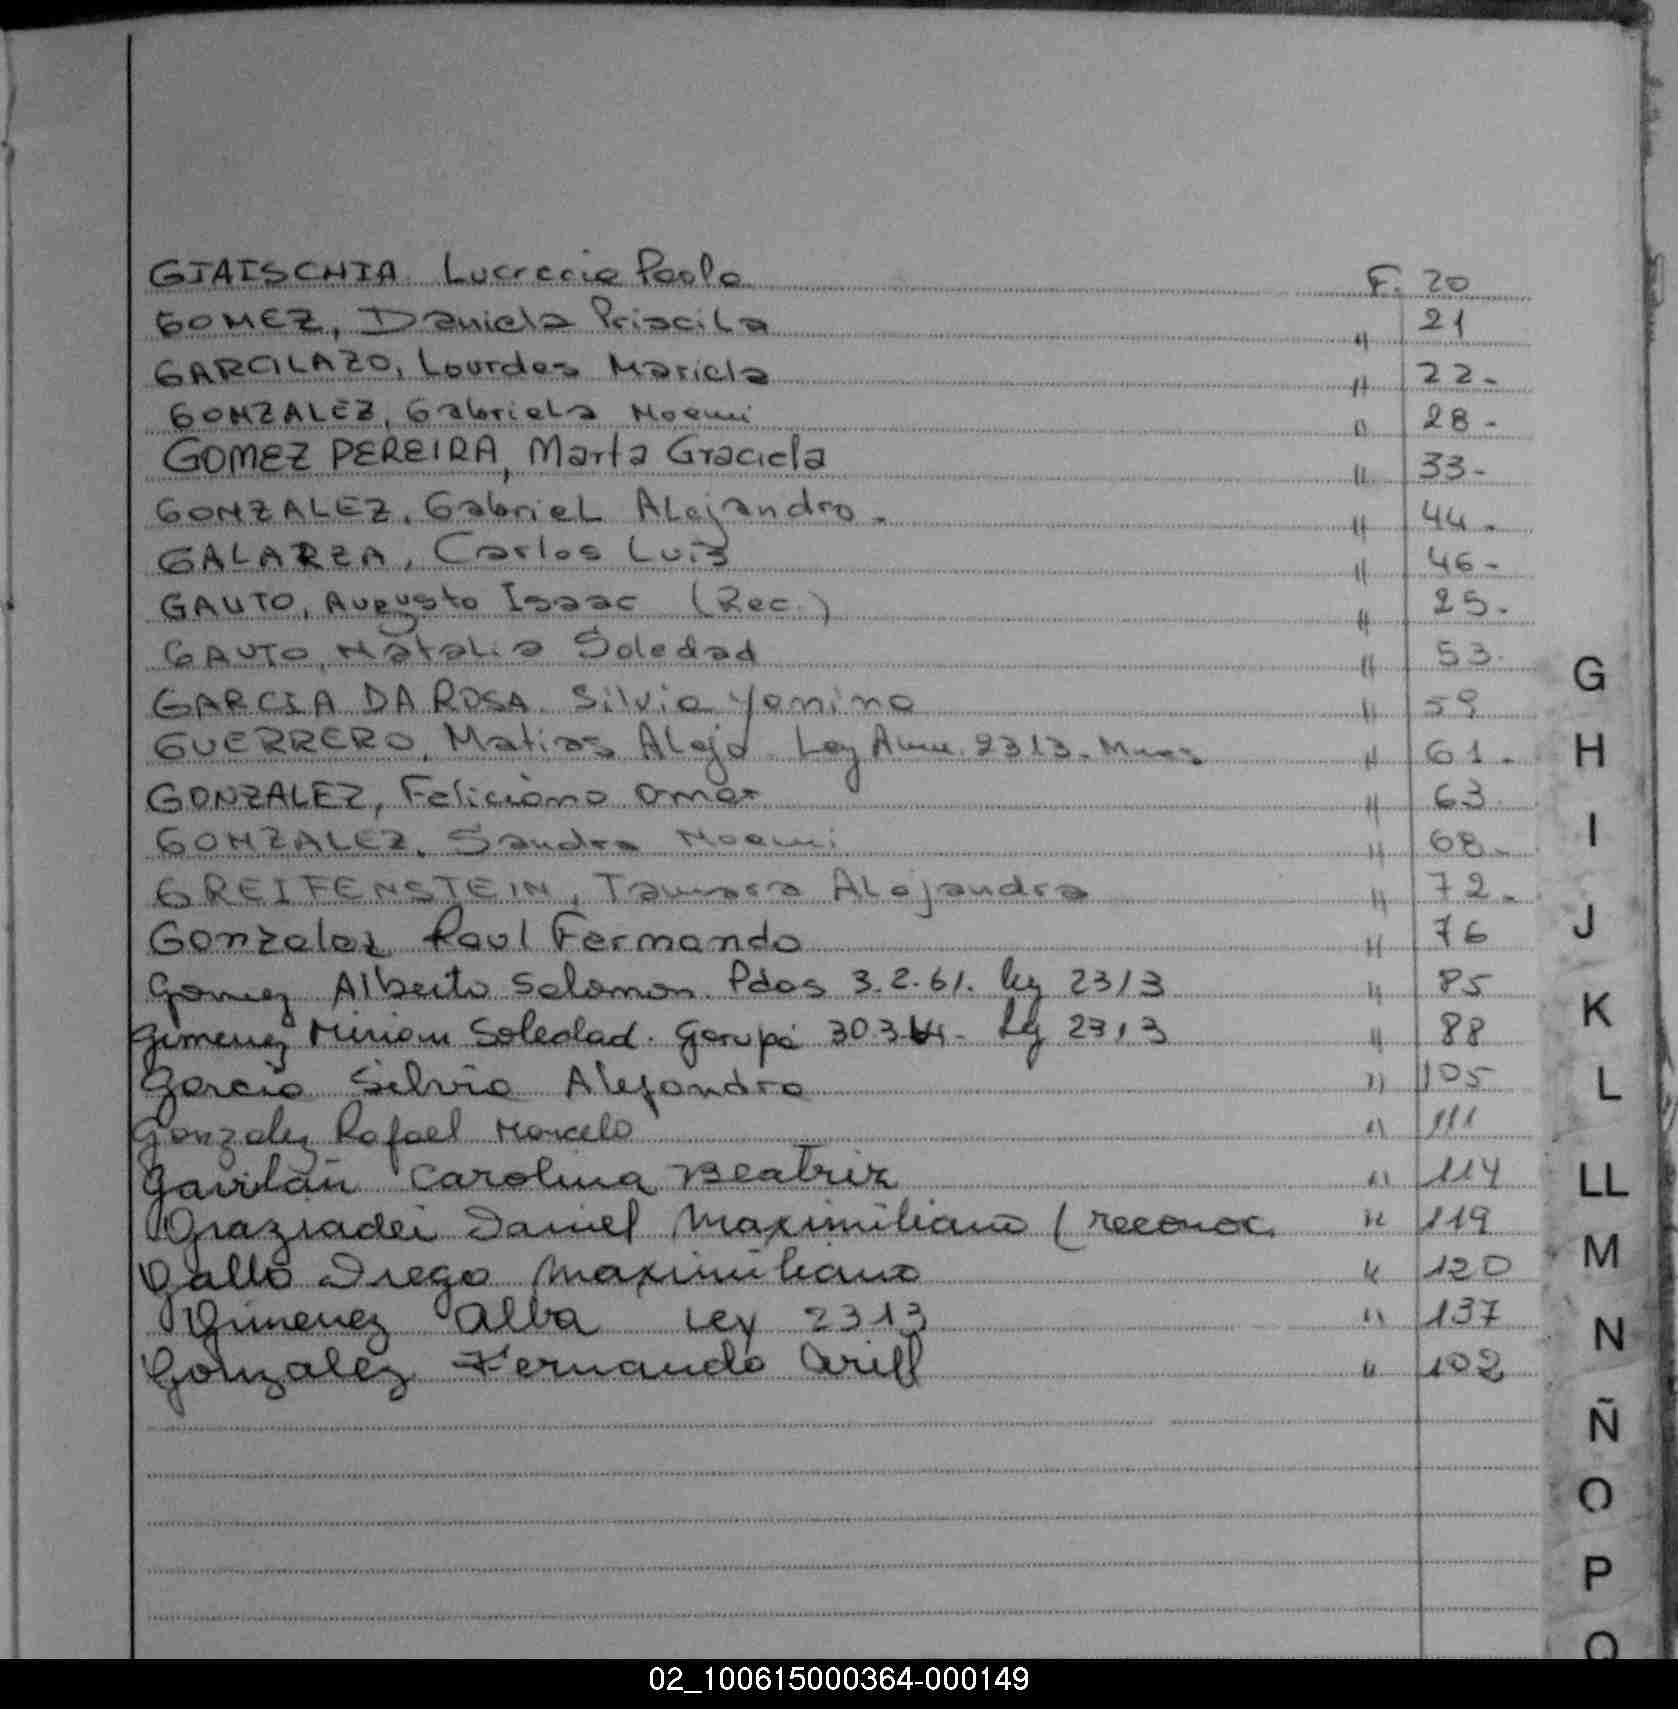 GIAISCHIA Lucrecia Paola F. 20
GOMEZ, Daniela Priscila " 21
GARCILAZO, Lourdes Mariela " 22-
GONZALEZ, Gabriela Noemi " 28-
GOMEZ PEREIRA, Marta Graciela " 33-
GONZALEZ, Gabriel Alejandro. " 44-
GALARZA, Carlos Luis " 46-
GAUTO, Augusto Isaac (Rec.) " 25-
GAUTO, Natalia Soledad " 53.
GARCIA DA ROSA. Silvia Yanina " 59
GUERRERO, Matias Alejo. Ley 2313. " 61.
GONZALEZ, Feliciano Omar " 63
GONZALEZ, Sandra Noemi " 68-
GREIFENSTEIN, Tamara Alejandra " 72-
Gonzalez Raul Fernando " 76
Gomez Alberto Salomon. Pdas 3.2.61. Ley 2313 " 85
Gimenez Miriam Soledad. Garupá Ley 2313 " 88
Garcia Silvia Alejandra " 105
Gonzalez Rafael Marcelo " 111
Gavilán Carolina Beatriz " 114
Graziadei Daniel Maximiliano (reconoc. " 119
Gallo Diego Maximiliano " 120
Gimenez Alba Ley 2313 " 137
Gonzalez Fernando Ariel " 102
G
H
I
J
K
L
LL
M
N
Ñ
O
P
Q
02_100615000364-000149